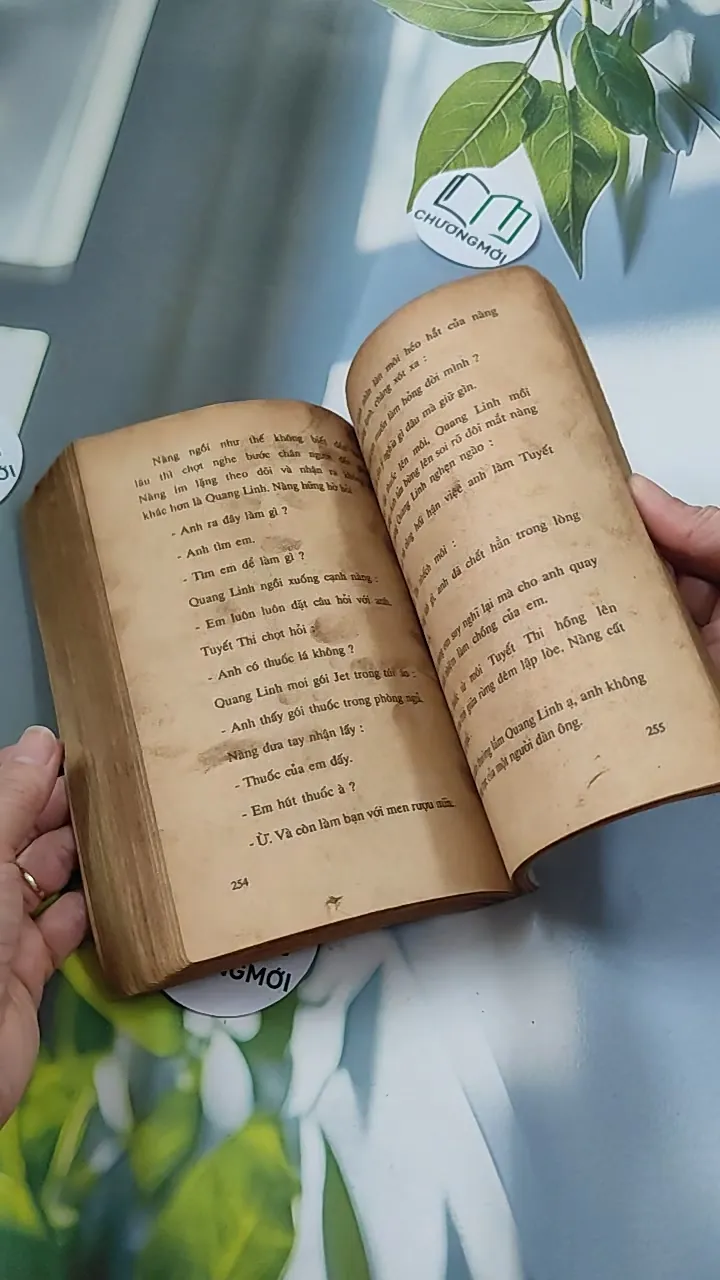 CHƯƠNGMỚI
Nàng ngồi như thế không biết
lâu thì chợt nghe bước chân người
Nàng im lặng theo dõi và nhận ra không
khác hơn là Quang Linh. Nàng hững hờ hỏi
- Anh ra đây làm gì ?
- Anh tìm em.
- Tìm em để làm gì ?
Quang Linh ngồi xuống cạnh nàng :
- Em luôn luôn đặt câu hỏi với anh.
Tuyết Thi chợt hỏi :
- Anh có thuốc lá không ?
Quang Linh moi gói Jet trong túi áo :
- Anh thấy gói thuốc trong phòng ngủ.
Nàng đưa tay nhận lấy :
- Thuốc của em đấy.
- Em hút thuốc à ?
- Ừ. Và còn làm bạn với men rượu nữa.
254
làn môi héo hắt của nàng
chàng xót xa :
muốn làm hỏng đời mình ?
nghĩa gì đâu mà giữ gìn.
thuốc lên môi, Quang Linh mồi
lửa bùng lên soi rõ đôi mắt nàng
Quang Linh nghẹn ngào :
hối hận việc anh làm Tuyết
nhếch môi :
gì, anh đã chết hẳn trong lòng
em suy nghĩ lại mà cho anh quay
làm chồng của em.
từ môi Tuyết Thi hồng lên
giữa rừng đêm lập lòe. Nàng cất
lắm Quang Linh ạ, anh không
của một người đàn ông.
255
GMỚI
ỚI